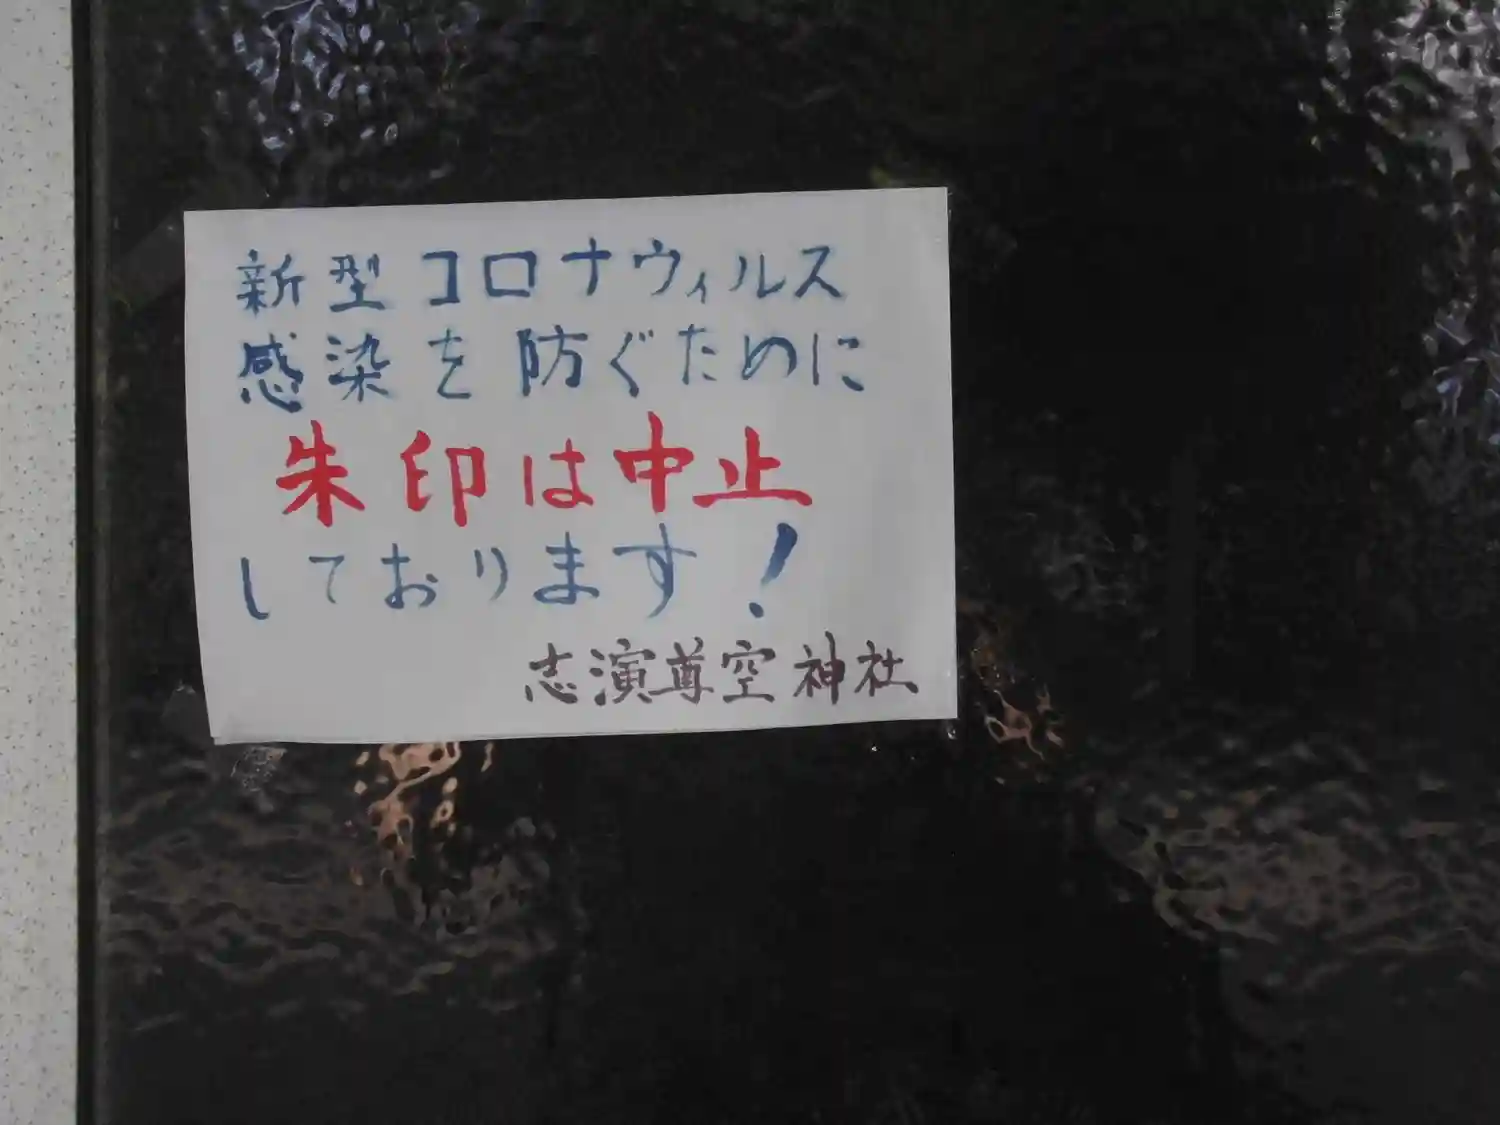 新型コロナウィルス
感染を防ぐために
朱印は中止
しております！
志演尊空神社